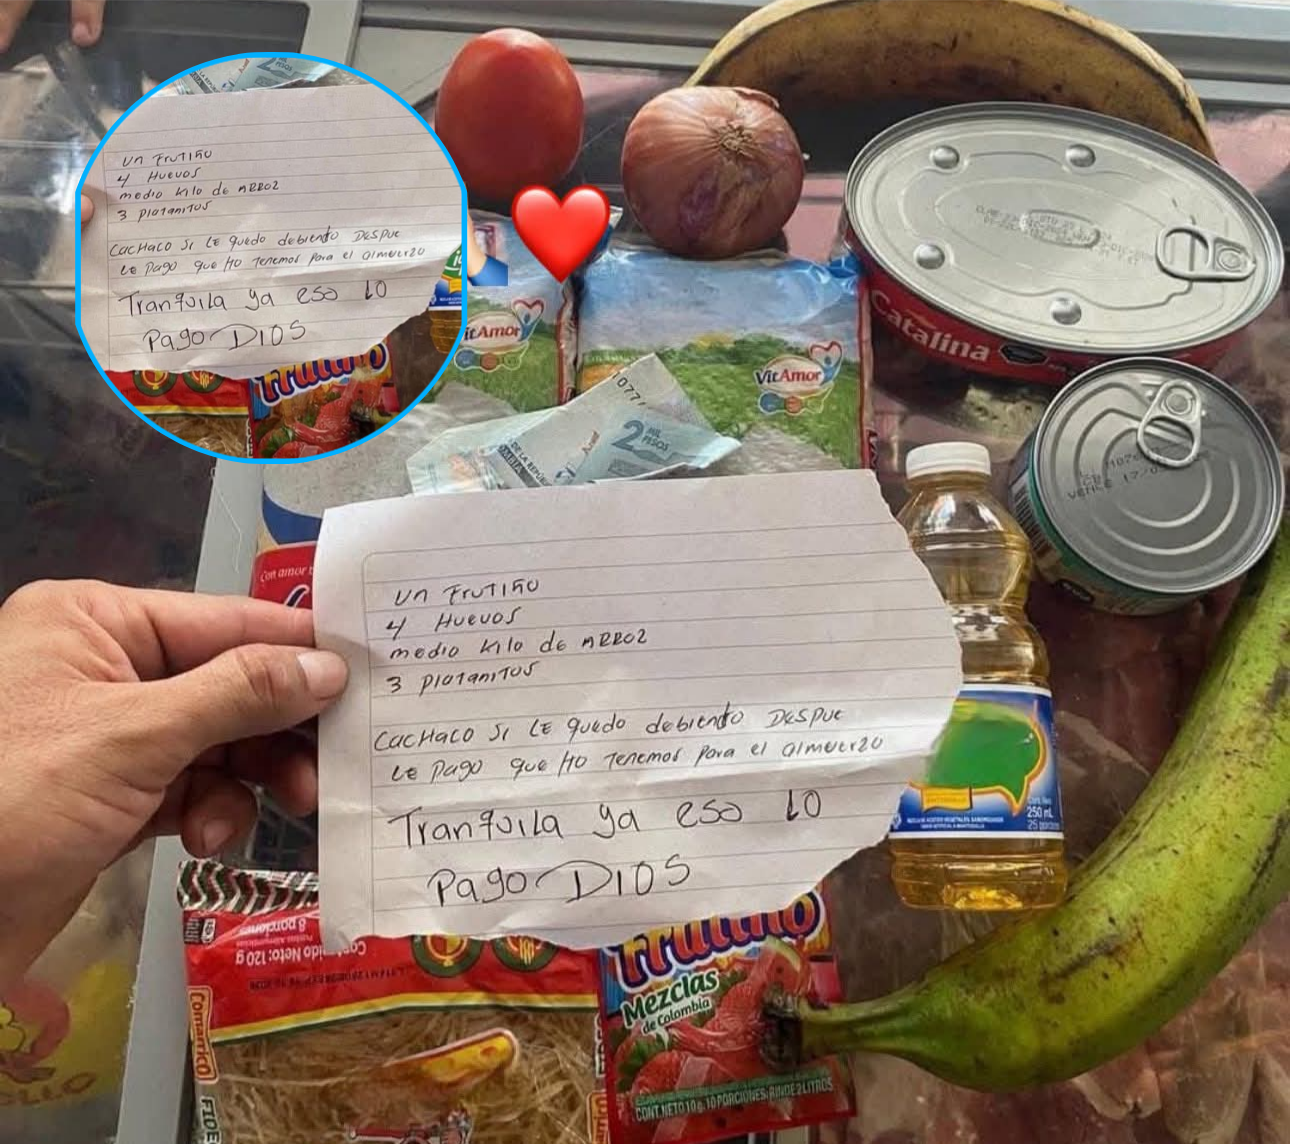 un Frutiño
4 Huevos
medio kilo de ARROZ
3 platanitos
CacHaco si LE quedo debiendo DESPUE
LE Pago que Ho Tenemos para el almuerzo
Tranquila ya eso LO
Pago DIOS
VitAmor
VitAmor
Catalina
2 MIL
PESOS
DE LA REPÚ
1077
VENCE 17/0
Con amor
un Frutiño
4 Huevos
medio kilo de ARROZ
3 platanitos
CacHaco si LE quedo debiendo DESPUE
LE Pago que Ho Tenemos para el almuerzo
Tranquila ya eso LO
Pago DIOS
250 mL
25 porciones
8 porciones
Neto: 120 g
Comarrico
FIDE
Frutiño
Mezclas
de Colombia
CONT. NETO 10 g 10 PORCIONES RINDE 2 LITROS